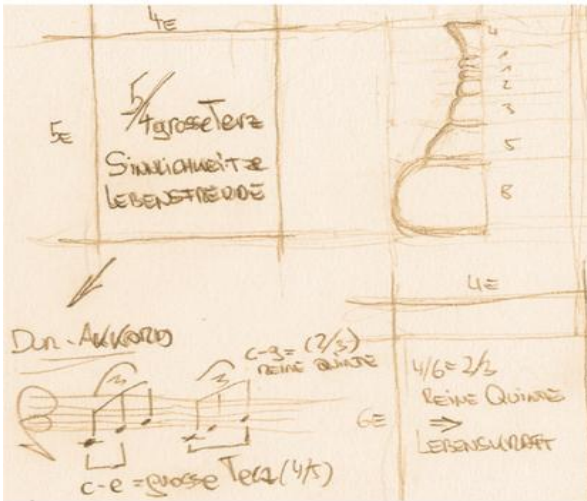 4E
5E
5/4 grosse Terz
SINNLICHKEIT &
LEBENSFREUDE
4
1
1
2
3
5
8
4E
DUR-AKKORD
c-g = (2/3)
REINE QUINTE
3
3
c-e = grosse Terz (4/5)
6E
4/6 = 2/3
REINE QUINTE
⇒
LEBENSKRAFT